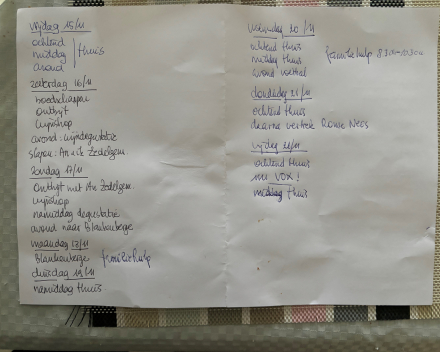 vrijdag 15/11
ochtend
middag
avond
thuis
zaterdag 16/11
boodschappen
ontbijt
wijnshop
avond: wijndegustatie
slapen: An Zedelgem
zondag 17/11
Ontbijt met An Zedelgem
wijnshop
namiddag degustatie
avond naar Blankenberge
maandag
Blankenberge familiehulp
dinsdag 19/11
namiddag thuis
woensdag 20/11
ochtend thuis
middag thuis
avond vertrek
familiehulp
donderdag 21/11
ochtend thuis
daarna vertrek
vrijdag
ochtend thuis
VOX!
middag thuis